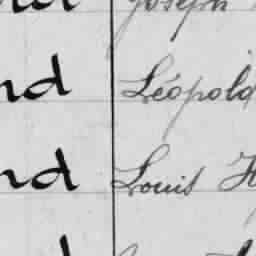 nd Joseph
nd Léopold
nd Louis H